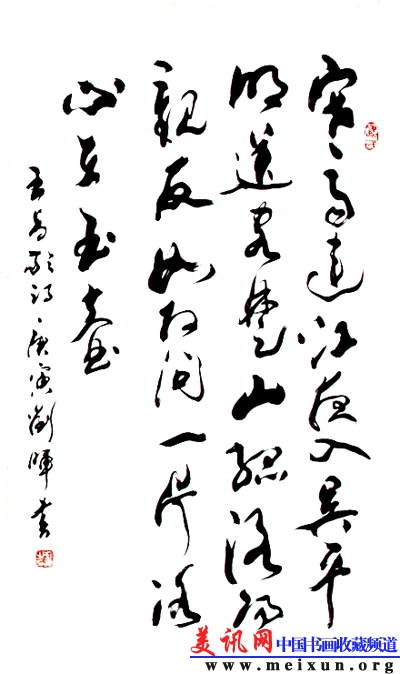 寒雨連江夜入吴平
明送客楚山孤洛陽
親友如相问一片冰
心在玉壶
王昌龄诗庚寅劉暉书
美讯网 中国书画收藏频道
www.meixun.org